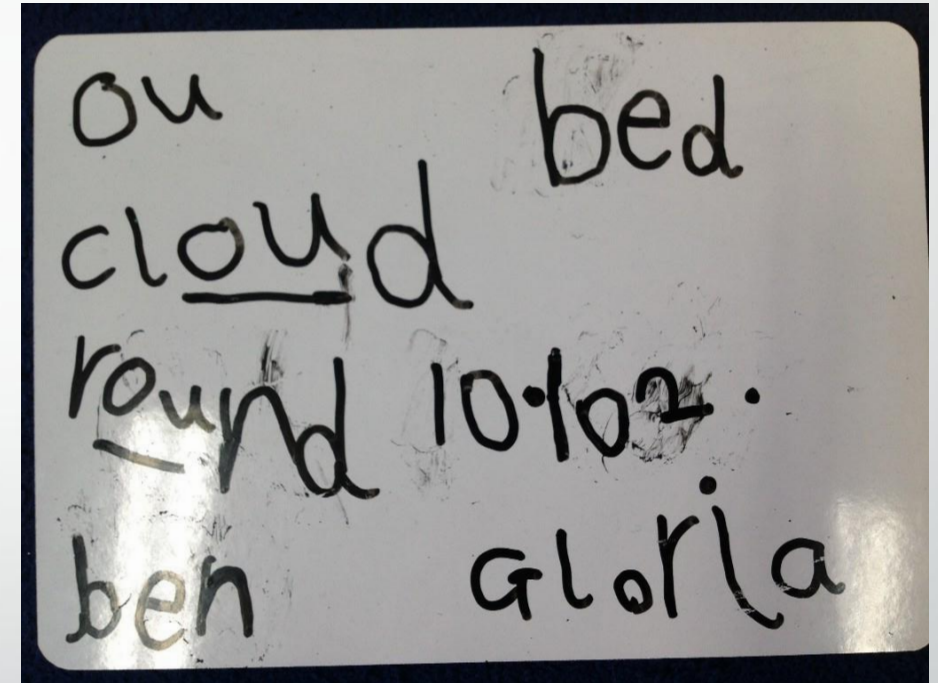 ou
bed
cloud
round
10·102.
ben
Gloria